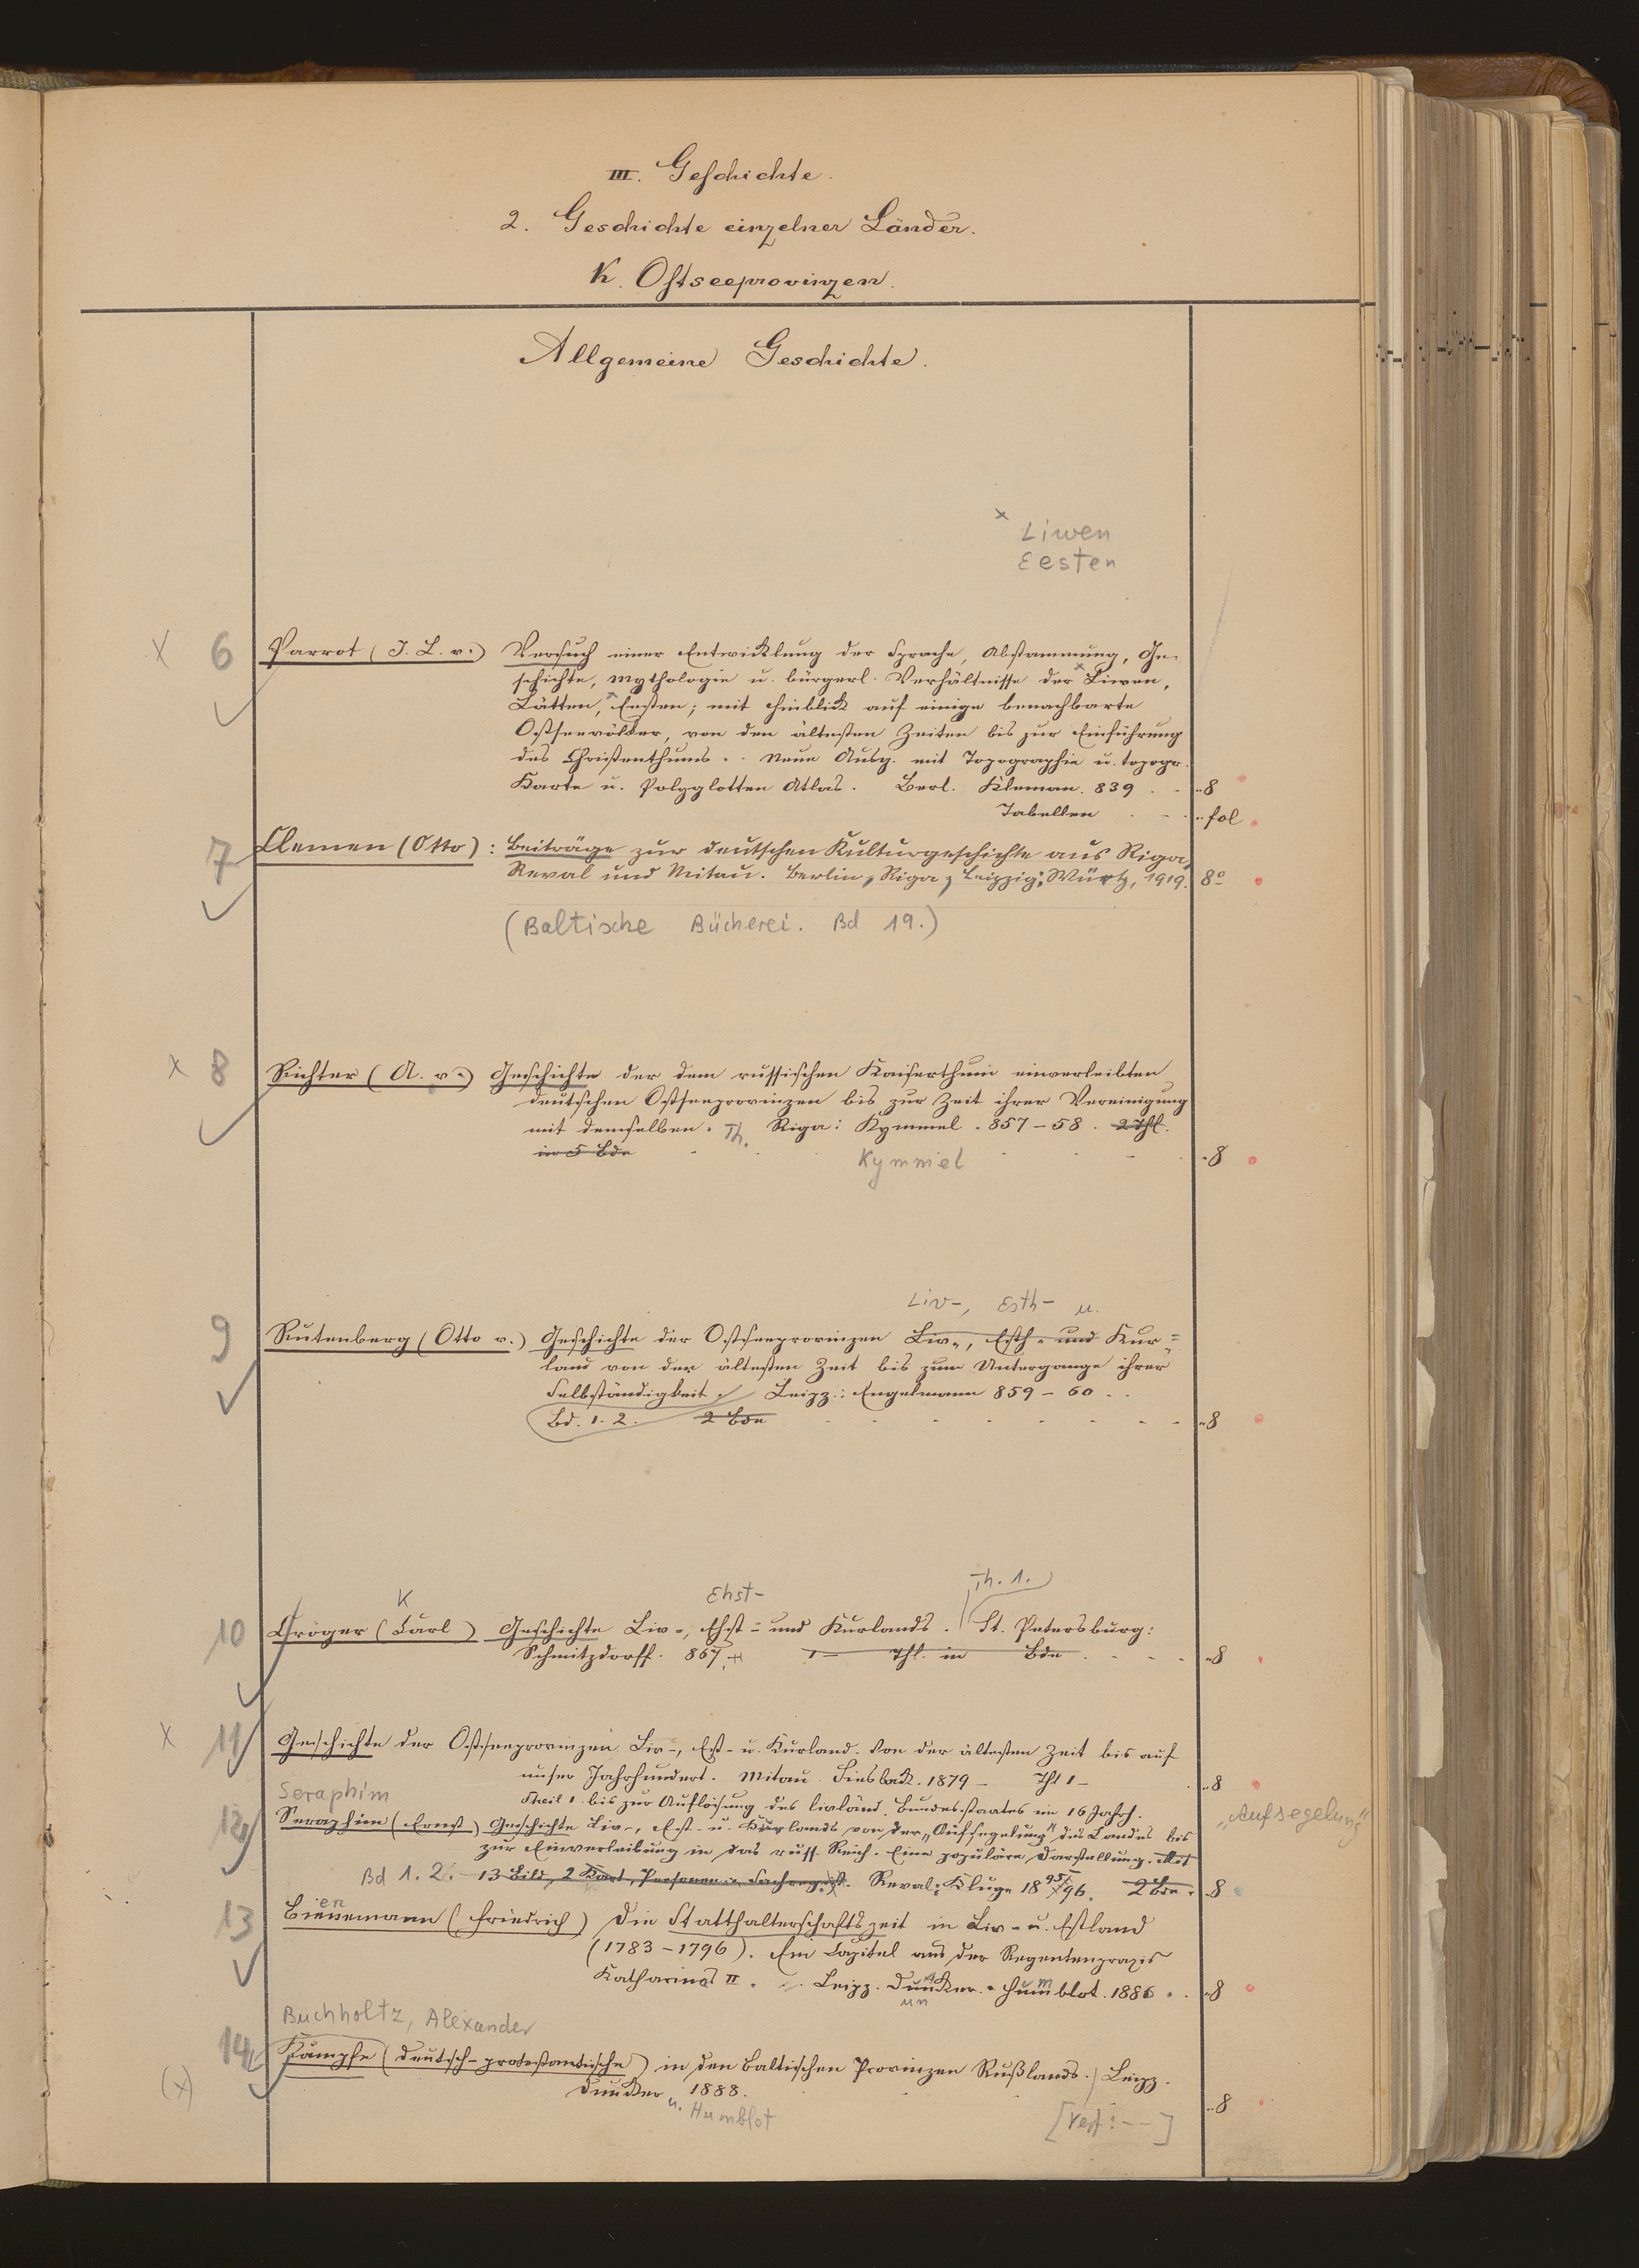 III. Geschichte.
2. Geschichte einzelner Länder.
K. Ostseeprovinzen.
Allgemeine Geschichte.
x Liwen
Eesten
x 6 Parrot (J. L. v.) Versuch einer Entwicklung der Sprache, Abstammung, Ge-
schichte, Mythologie u. bürgerl. Verhältnisse der Liwen,
Lätten, Eesten; mit Hinblick auf einige benachbarte
Ostseevölker, von den ältesten Zeiten bis zur Einführung
des Christenthums. Neue Ausg. mit Topographie u. topogr.
Karte u. Polyglotten Atlas. Berl. Kleman. 839 8
Tabellen fol
7 Clemen (Otto): Beiträge zur deutschen Kulturgeschichte aus Riga,
Reval und Mitau. Berlin, Riga, Leipzig: Würtz, 1919. 8º
(Baltische Bücherei. Bd 19.)
x 8 Richter (A. v.) Geschichte der dem russischen Kaiserthum einverleibten
deutschen Ostseeprovinzen bis zur Zeit ihrer Vereinigung
mit demselben. Th. Riga: Kymmel. 857-58. 2 Thl.
in 5 Bde 8
Kymmel
Liv-, Esth- u.
9 Rutenberg (Otto v.) Geschichte der Ostseeprovinzen Liv-, Esth- und Kur=
land von der ältesten Zeit bis zum Untergange ihrer
Selbständigkeit. Leipz.: Engelmann 859-60
Bd. 1. 2. 2 Bde 8
K Ehst- Th. 1.
10 Gröger (Carl) Geschichte Liv-, Ehst- und Kurlands. St. Petersburg:
Schmitzdorff. 867. 1 - Thl. in Bde 8
x 11 Geschichte der Ostseeprovinzen Liv-, Est- u. Kurland. Von der ältesten Zeit bis auf
unser Jahrhundert. Mitau. Sieslack. 1879 - Thl 1 - 8
Theil 1 bis zur Auflösung des livländ. Bundesstaates im 16 Jahrh.
Seraphim
12 Seraphim (Ernst) Geschichte Liv-, Est- u. Kurlands von der „Aufsegelung" des Landes bis
„Aufsegelung"
zur Einverleibung in das russ. Reich. Eine populäre Darstellung. Mit
Bd 1. 2. 13 Bild, 2 Kart, Personen u. Sachregist. Reval: Kluge 1895/96. 2 Bde. 8
en
13 Bienemann (Friedrich) Die Statthalterschaftszeit in Liv- u. Estland
(1783-1796). Ein Capitel aus der Regentenpraxis
Katharinas II. Leipz. Duncker. Humblot. 1886. 8
un
Buchholtz, Alexander
14 Kämpfe (deutsch-protestantische) in den Baltischen Provinzen Rußlands. Leipz.
(x) Duncker 1888. 8
u. Humblot [Verf: --]